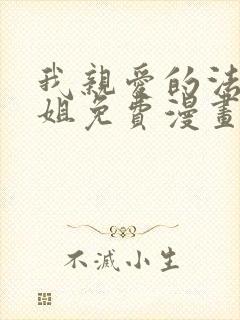 我親愛的法
姐免費漫畫
不滅小生